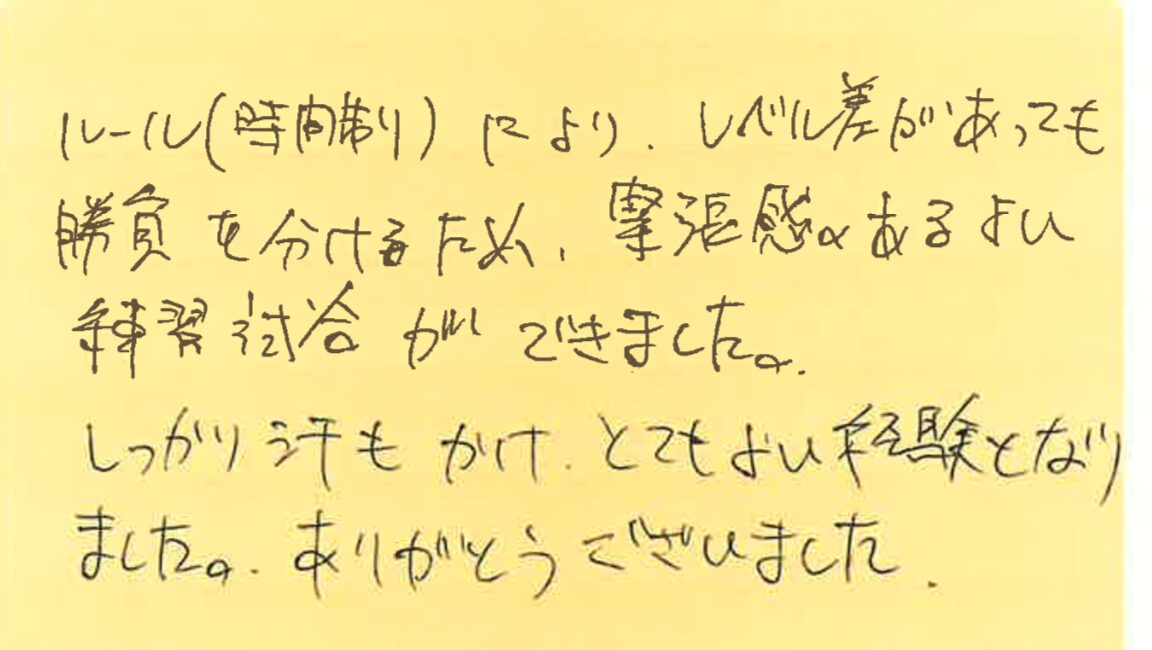 ルール(時間制)により、レベル差があっても
勝負を分けるため、緊張感のあるよい
練習試合ができました。
しっかり汗もかけ、とてもよい経験となり
ました。ありがとうございました.